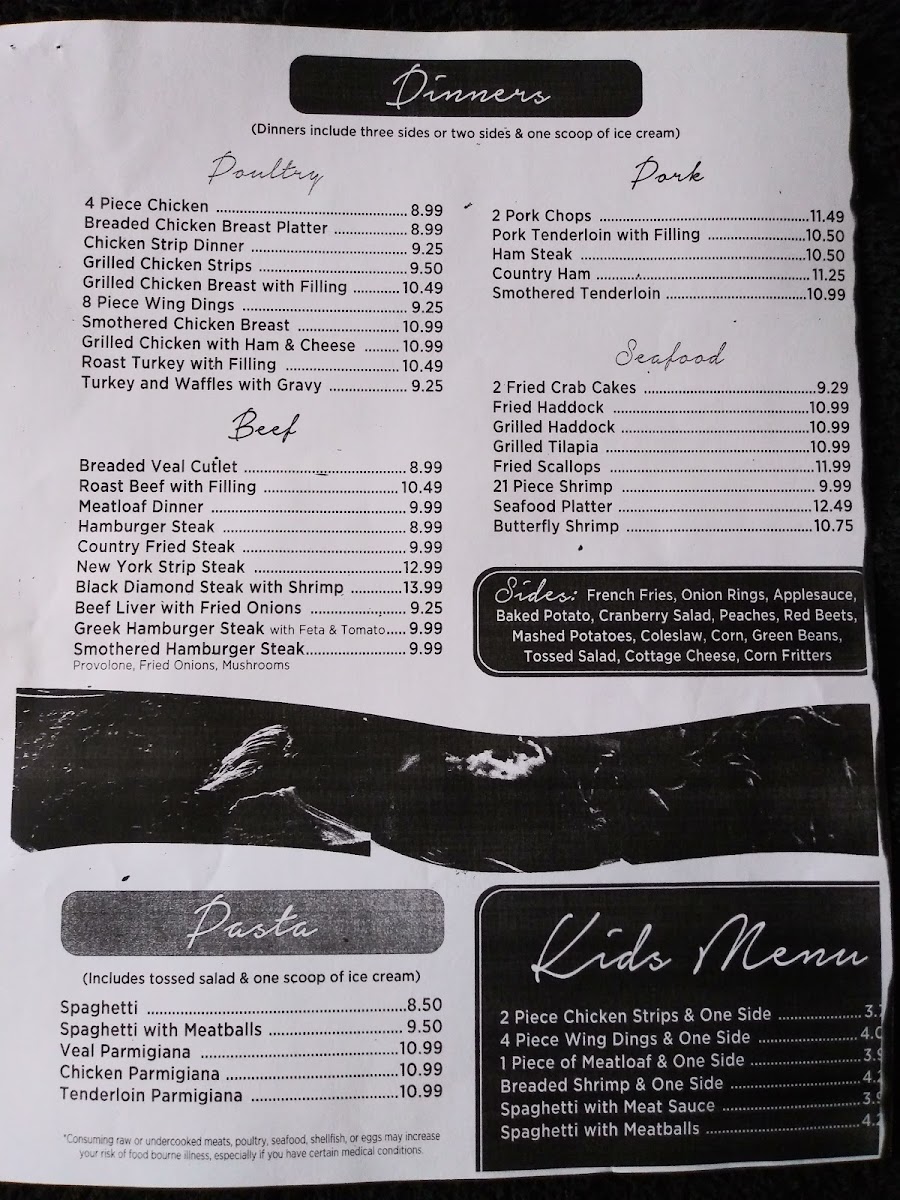 Dinners
(Dinners include three sides or two sides & one scoop of ice cream)
Poultry
4 Piece Chicken 8.99
Breaded Chicken Breast Platter 8.99
Chicken Strip Dinner 9.25
Grilled Chicken Strips 9.50
Grilled Chicken Breast with Filling 10.49
8 Piece Wing Dings 9.25
Smothered Chicken Breast 10.99
Grilled Chicken with Ham & Cheese 10.99
Roast Turkey with Filling 10.49
Turkey and Waffles with Gravy 9.25
Beef
Breaded Veal Cutlet 8.99
Roast Beef with Filling 10.49
Meatloaf Dinner 9.99
Hamburger Steak 8.99
Country Fried Steak 9.99
New York Strip Steak 12.99
Black Diamond Steak with Shrimp 13.99
Beef Liver with Fried Onions 9.25
Greek Hamburger Steak with Feta & Tomato 9.99
Smothered Hamburger Steak 9.99
Provolone, Fried Onions, Mushrooms
Pork
2 Pork Chops 11.49
Pork Tenderloin with Filling 10.50
Ham Steak 10.50
Country Ham 11.25
Smothered Tenderloin 10.99
Seafood
2 Fried Crab Cakes 9.29
Fried Haddock 10.99
Grilled Haddock 10.99
Grilled Tilapia 10.99
Fried Scallops 11.99
21 Piece Shrimp 9.99
Seafood Platter 12.49
Butterfly Shrimp 10.75
Sides: French Fries, Onion Rings, Applesauce,
Baked Potato, Cranberry Salad, Peaches, Red Beets,
Mashed Potatoes, Coleslaw, Corn, Green Beans,
Tossed Salad, Cottage Cheese, Corn Fritters
Pasta
(Includes tossed salad & one scoop of ice cream)
Spaghetti 8.50
Spaghetti with Meatballs 9.50
Veal Parmigiana 10.99
Chicken Parmigiana 10.99
Tenderloin Parmigiana 10.99
*Consuming raw or undercooked meats, poultry, seafood, shellfish, or eggs may increase
your risk of food bourne illness, especially if you have certain medical conditions.
Kids Menu
2 Piece Chicken Strips & One Side
4 Piece Wing Dings & One Side
1 Piece of Meatloaf & One Side
Breaded Shrimp & One Side
Spaghetti with Meat Sauce
Spaghetti with Meatballs